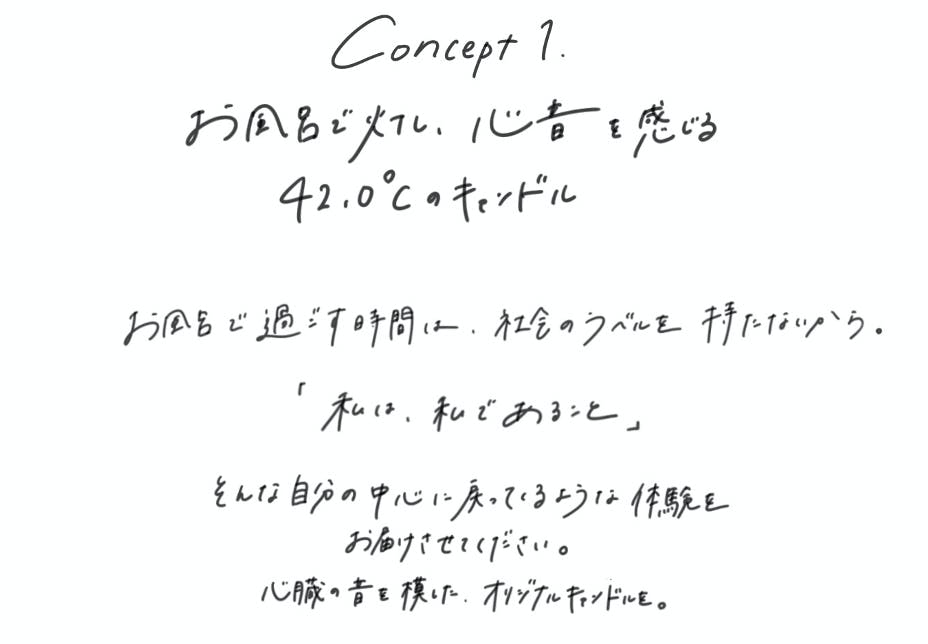 Concept 1.
お風呂で灯し、心音を感じる
42.0℃のキャンドル
お風呂で過ごす時間は、社会のラベルを持たないから。
「私は、私であること」
そんな自分の中心に戻ってくるような体験を
お届けさせてください。
心臓の音を模した、オリジナルキャンドルを。